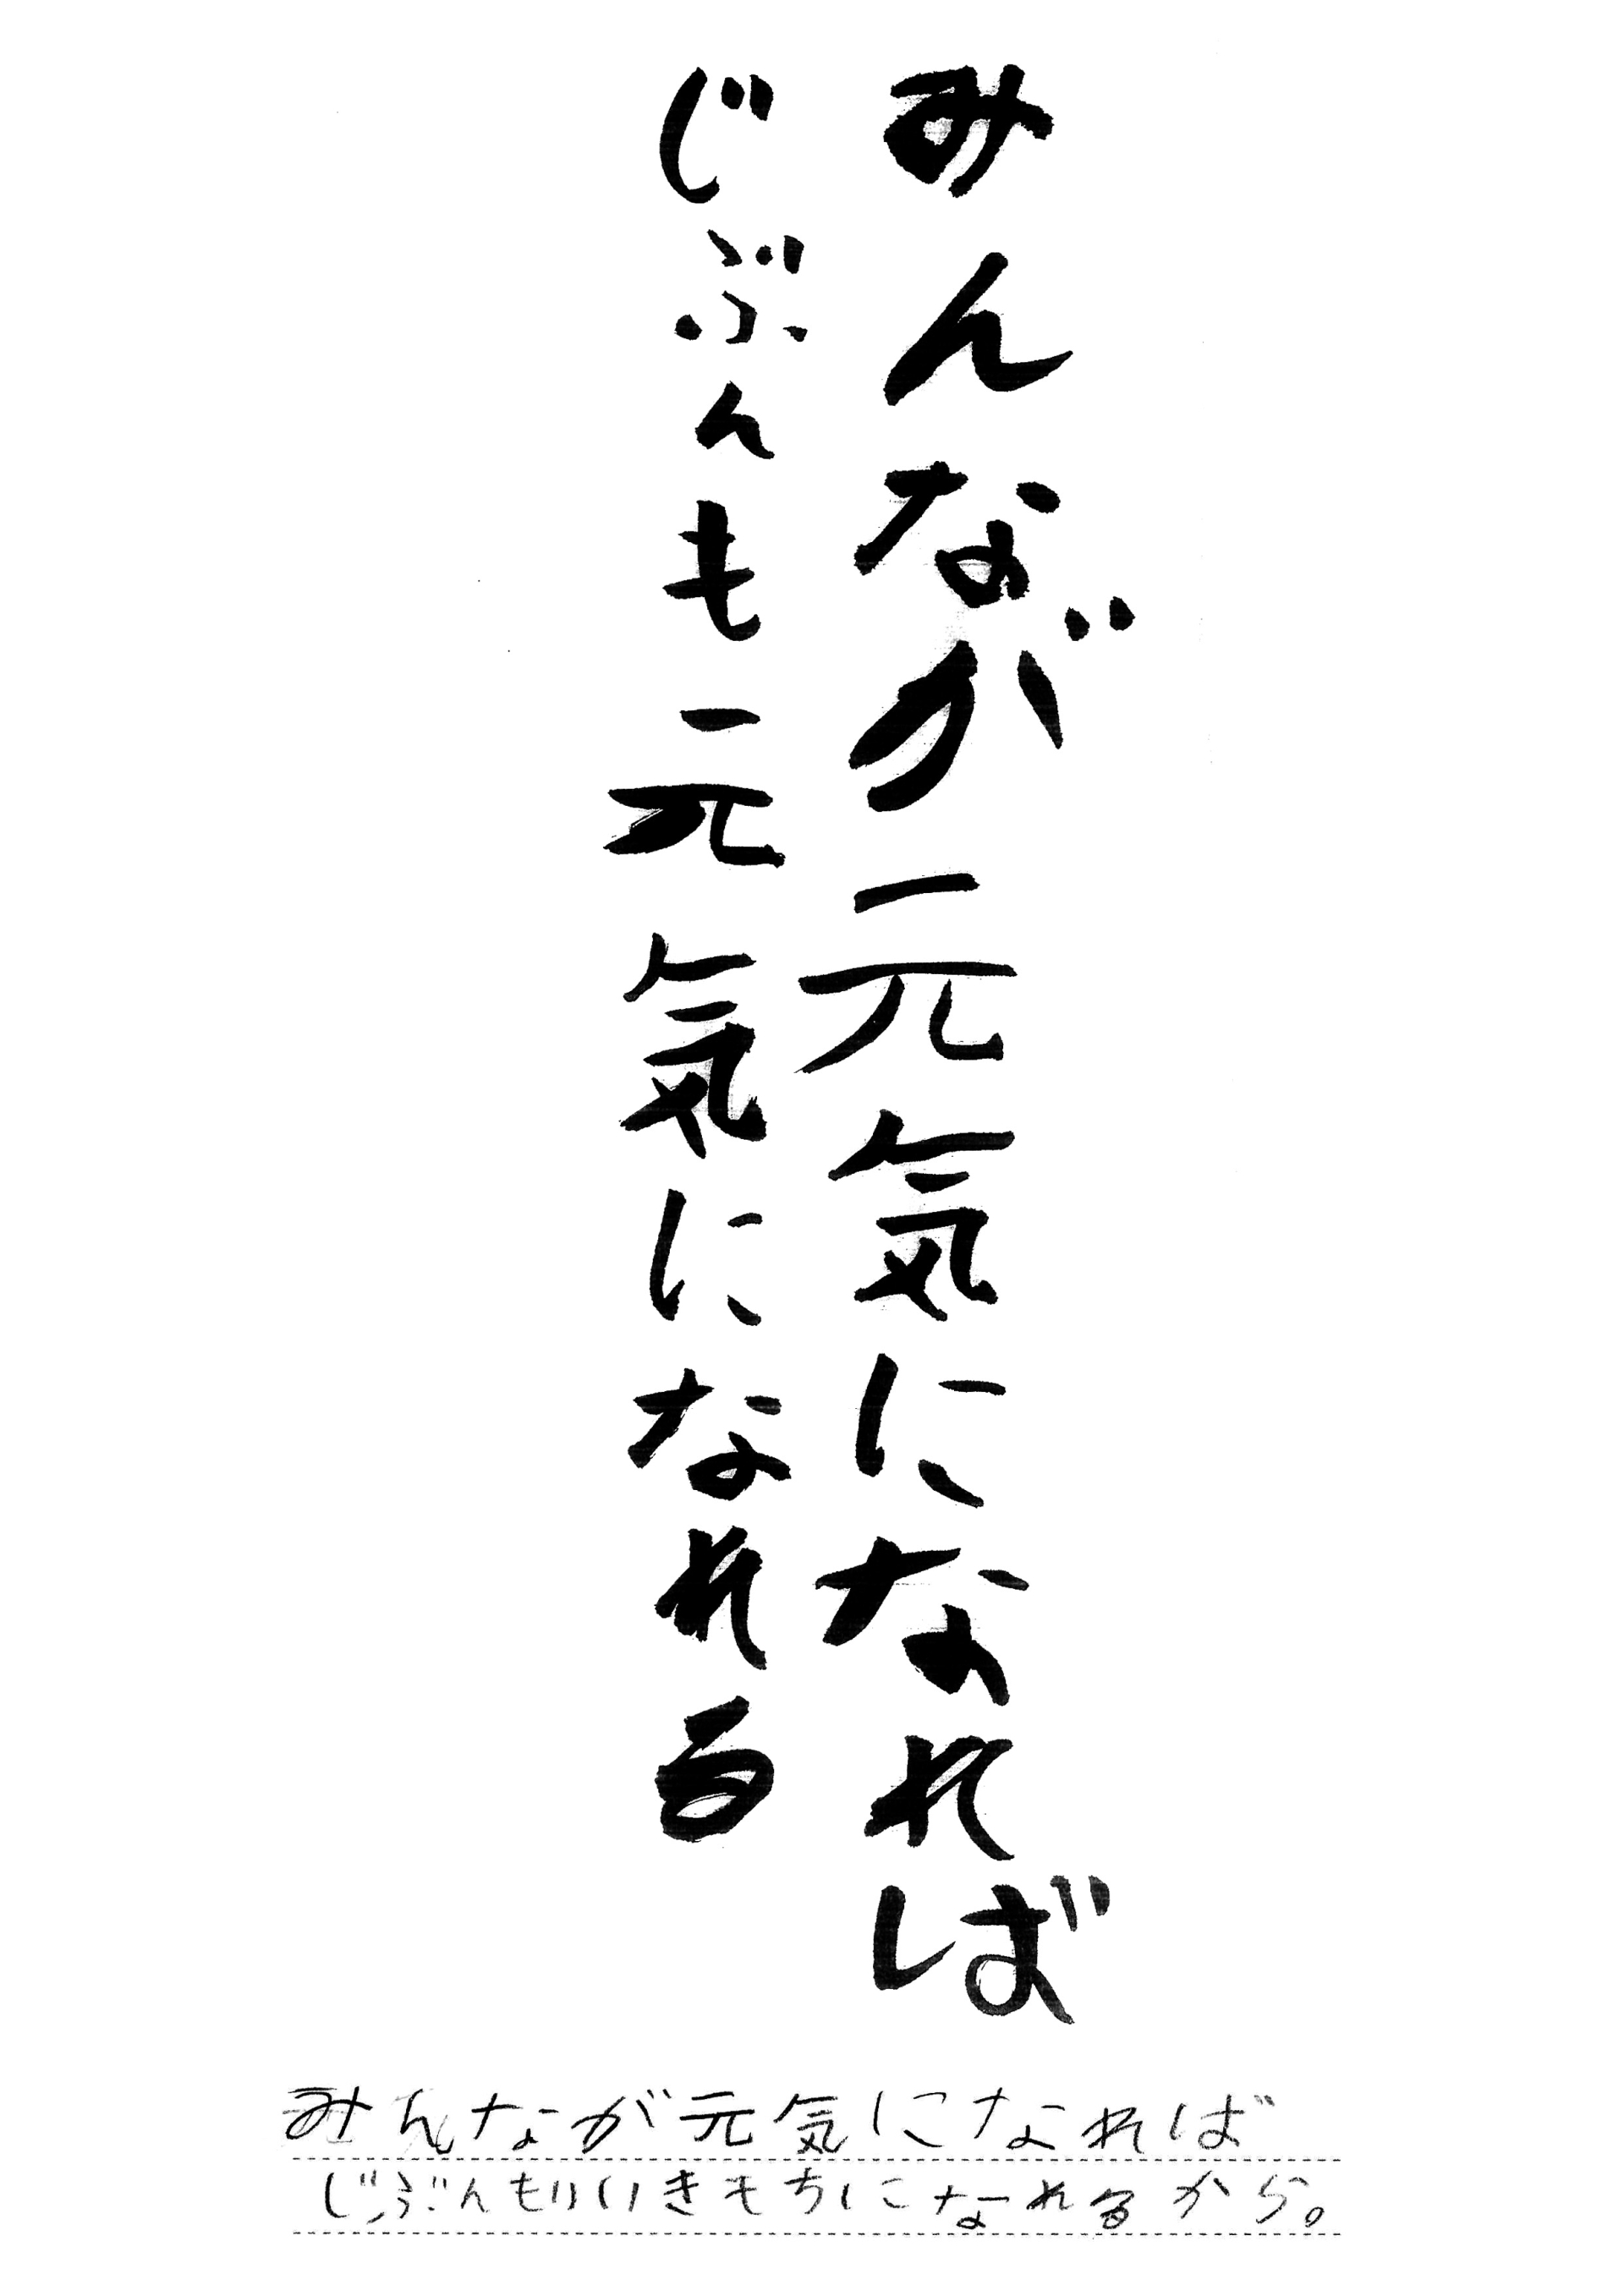 みんなが元気になれば
じぶんも元気になれる
みんなが元気になれば
じぶんもいいきもちになれるから。